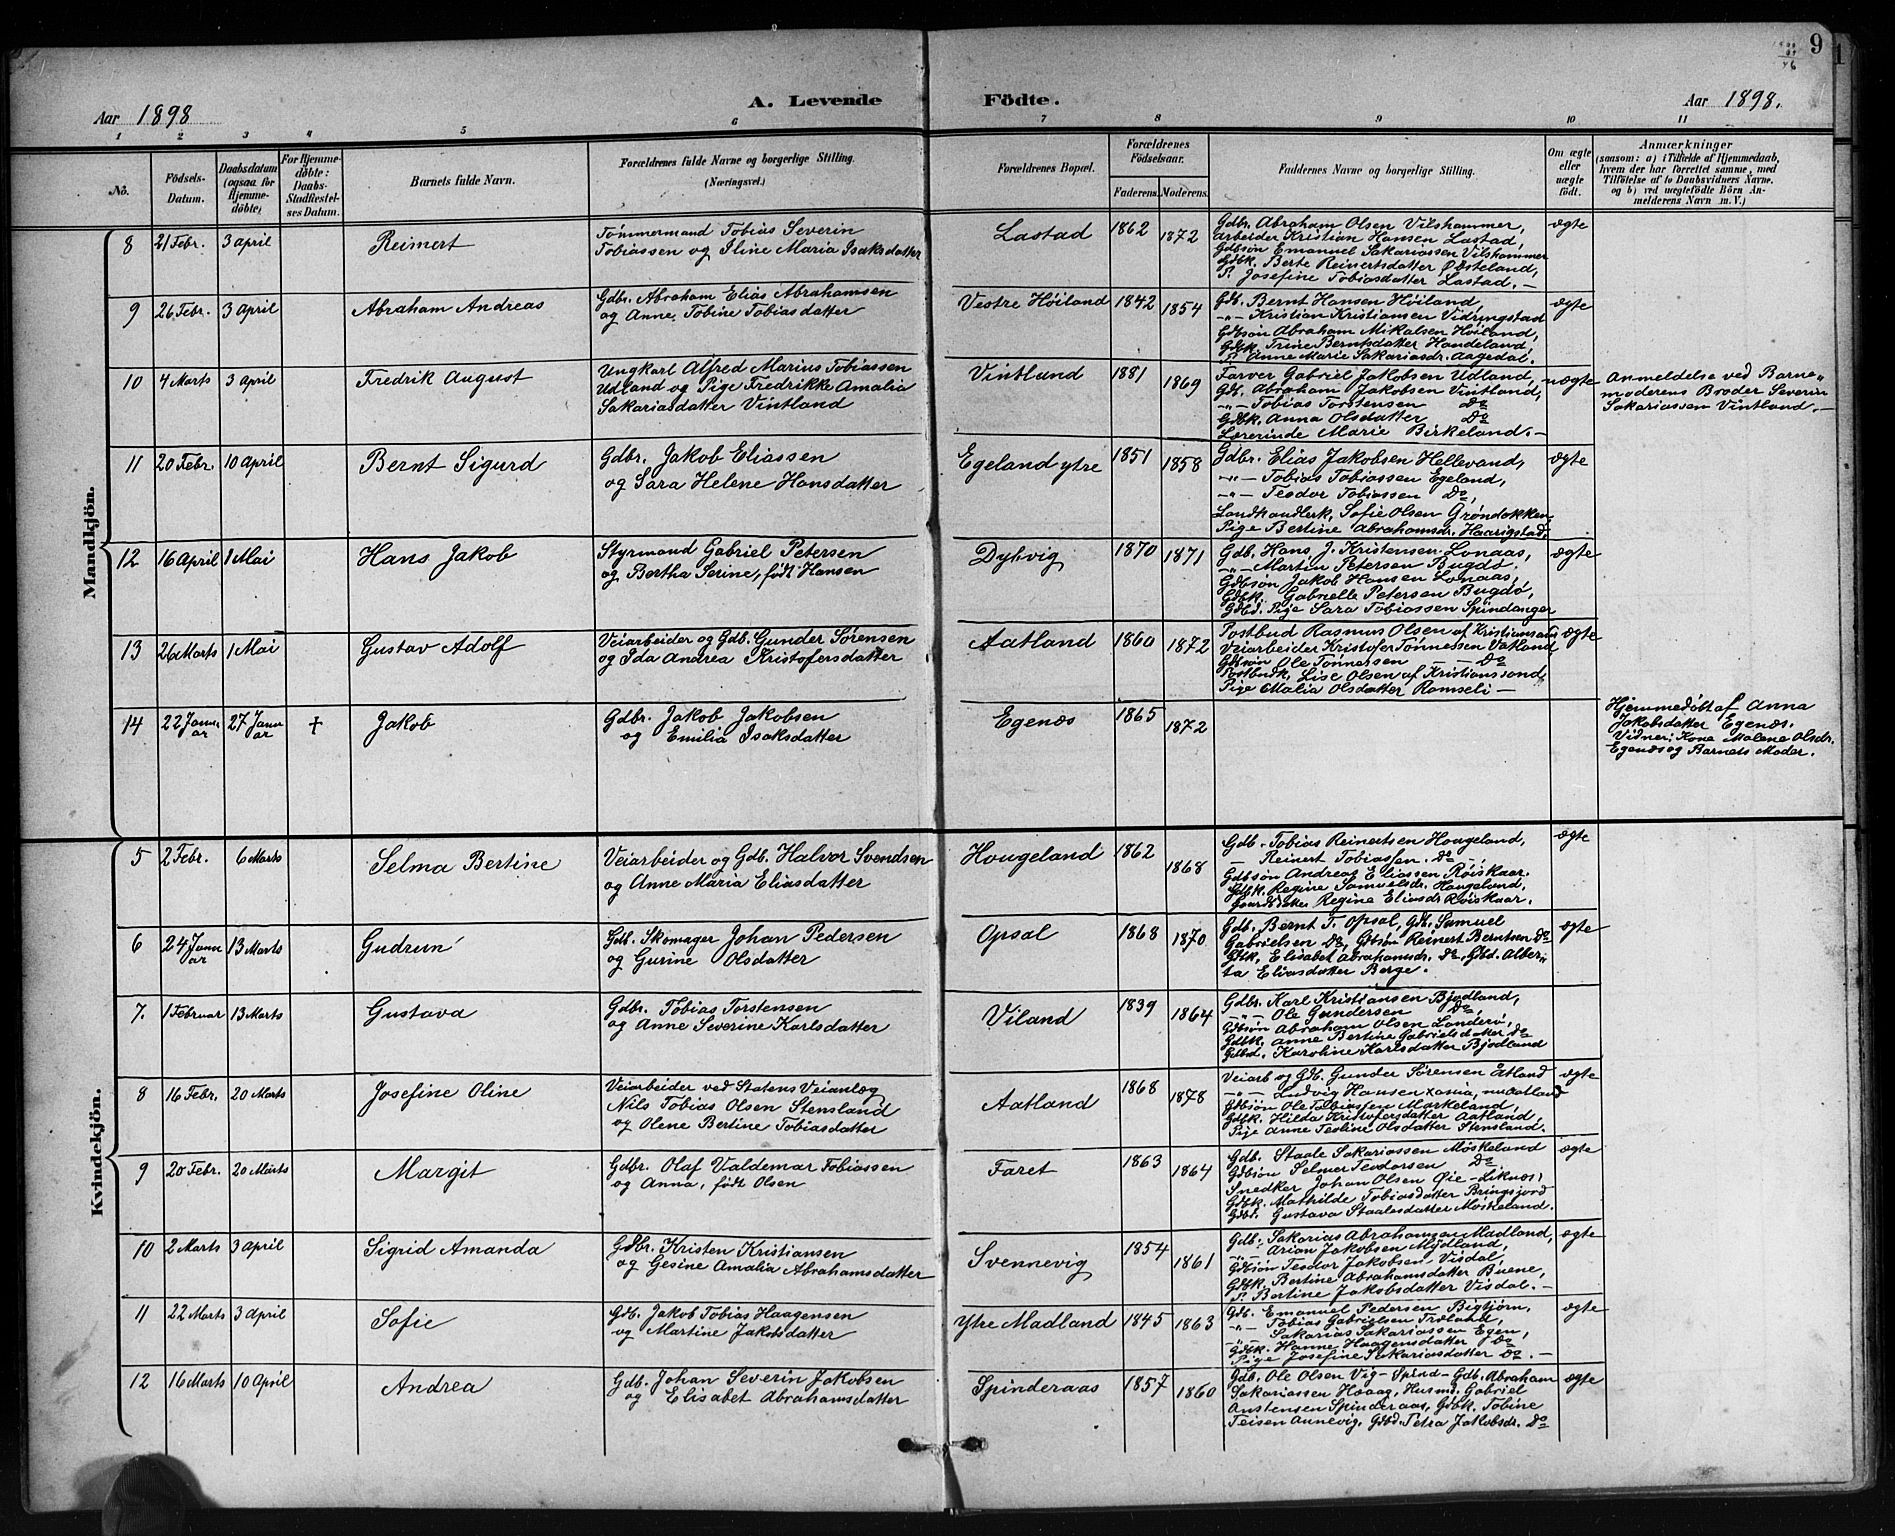 9
Aar 1898
A. Levende Födte.
Aar 1898.
1 2 3 4 5 6 7 8 9 10 11
No.
Födsels-Datum.
Daabsdatum (ogsaa for Hjemme-döbte)
For Hjemme-döbte: Daabs-Stadfæstel-ses Datum.
Barnets fulde Navn.
Forældrenes fulde Navne og borgerlige Stilling. (Næringsvei.)
Forældrenes Bopæl.
Forældrenes Födselsaar.
Faderens. Moderens.
Faddernes Navne og borgerlige Stilling.
Om ægte eller uægte födt.
Anmærkninger
(saasom: a) i Tilfælde af Hjemmedaab,
hvem der har forrettet samme, med
Tilföielse af to Daabsvidners Navne,
og b) ved uægtefödte Börn An-
melderens Navn m. V.)
Mandkjön.
8 21 Febr. 3 April Reimert
Tömmermand Tobias Severin
Tobiassen og Iline Maria Isaksdatter
Lastad 1862 1872
Gdbr. Abraham Olsen Vilshammer,
Arbeider Kristian Hansen Lastad,
Gdbsön Emanuel Sakariassen Vilshammer
Gdbk. Berte Reinertsdatter Østeland,
P. Josefine Tobiasdatter Lastad. —
ægte
9 26 Febr. 3 April Abraham Andreas
Gdbr. Abraham Elias Abrahamsen
og Anne Tobine Tobiasdatter
Vestre Höiland 1842 1854
Gdb. Bernt Hansen Höiland,
-"- Kristian Kristiansen Vidringstad
Gdbsön Abraham Mikalsen Höiland,
Gdbk. Trine Berntsdatter Handeland
P. Anne Marie Sakariasdr. Aagedal.
ægte
10 4 Marts 3 April Fredrik August
Ungkarl Alfred Marius Tobiassen
Udland og Pige Fredrikke Amalia
Sakariasdatter Vintland
Vintland 1881 1869
Farver Gabriel Jakobsen Udland,
Gdb. Abraham Jakobsen Vintland,
-"- Tobias Torstensen Do
Gdbk. Anna Olsdatter Do
Lærerinde Marie Birkeland. —
uægte
Anmeldelse ved Barne-
moderens Broder Severin
Sakariassen Vintland. —
11 20 Febr. 10 April Bernt Sigurd
Gdbr. Jakob Eliassen
og Sara Helene Hansdatter
Egeland ytre 1851 1858
Gdbr. Elias Jakobsen Hellevand,
-"- Tobias Tobiassen Egeland,
-"- Teodor Tobiassen Do,
Landhandlerk. Sofie Olsen Gröndokken
Pige Bertine Abrahamsdr. Haarigstad.
ægte
12 16 April 1 Mai Hans Jakob
Styrmand Gabriel Petersen
og Bertha Serine, födt Hansen
Dybvig 1870 1871
Gdb. Hans J. Kristensen Lonaas,
-"- Martin Petersen Bugdö.
Gdbsön Jakob Hansen Lonaas,
Gdbk. Gabrielle Petersen Bugdö,
Gdbd. Pige Sara Tobiassen Spindanger
ægte
13 26 Marts 1 Mai Gustav Adolf
Veiarbeider og Gdb. Gunder Sørensen
og Ida Andrea Kristofersdatter
Aatland 1860 1872
Postbud Rasmus Olsen af Kristianssand
Veiarbeider Kristofer Tönnessen Vatland,
Gdbsön Ole Tönnessen — Do
Postbudk. Lise Olsen af Kristianssand,
Pige Malia Olsdatter Romseli —
ægte
14 22 Janu-ar 27 Janu-ar + Jakob
Gdbr. Jakob Jakobsen
og Emilia Isaksdatter
Egenæs 1865 1872
Hjemmedöbt af Anna
Jakobsdatter Egenæs.
Vidner: Kone Malene Olsdr.
Egenæs og Barnets Moder.
Kvindekjön.
5 2 Febr. 6 Marts Selma Bertine
Veiarbeider og Gdb. Halvor Svendsen
og Anne Maria Eliasdatter
Hougeland 1862 1868
Gdb. Tobias Reinertsen Hougeland,
— Reinert Tobiassen. Do —
Gdbsön Andreas Eliassen Röiskaar.
Gdbk. Regine Samuelsdr. Hougeland,
Gaardsdatter Regine Eliasdr Röiskaar.
ægte
6 24 Janu-ar 13 Marts Gudrun
Gdb. Skomager Johan Pedersen
og Gurine Olsdatter
Opsal 1868 1870
Gdb. Bernt T. Opsal, Gdb. Samuel
Gabrielsen Do, Gdbsön Reinert Berntsen Do
Gdbk. Elisabet Abrahamsdr. Do, Gbd. Alber-
ta Eliasdatter Berge.
ægte
7. 1 Februar 13 Marts Gustava
Gdbr. Tobias Torstensen
og Anne Severine Karlsdatter
Viland 1839 1864
Gdbr. Karl Kristiansen Bjodland,
-"- Ole Gundersen Do,
Gdbsön Abraham Olsen Landerö,
Gdbk. Anne Bertine Gabrielsdatter Do
Gdbd. Karoline Karlsdatter Bjodland
8 16 Febr. 20 Marts Josefine Oline
Veiarbeider ved Statens Veianlæg
Nils Tobias Olsen Stensland
og Olene Bertine Tobiasdatter
Aatland 1868 1878
Veiarb og Gdb. Gunder Sörensen Aatland
-"- Ludvig Hansen Xania, nu Aatland
Gdbsön Ole Tobiassen Markeland,
Gdbk. Hilda Kristofersdatter Aatland,
Pige Anne Teoline Olsdatter Stensland.
ægte
9 20 Febr. 20 Marts Margit
Gdbr. Olaf Valdemar Tobiassen
og Anna, födt Olsen
Faret 1863 1864
Gdb. Staale Sakariassen Möskeland
Gdbsön Selmer Teodorsen Do
Snedker Johan Olsen Øie-Liknæs,
Gdbk. Mathilde Tobiasdatter Bringsjord
Gdbd. Gustava Staalesdatter Möskeland.
ægte
10 2 Marts 3 April Sigrid Amanda
Gdbr. Kristen Kristiansen
og Gesine Amalia Abrahamsdatter
Svennevig 1854 1861
Gdb. Sakarias Abrahamsen Madland,
-"- Arian Jakobsen Mydland,
Gdbsön Teodor Jakobsen Visdal,
Gdbk. Bertine Abrahamsdatter Buene,
P. Bertine Jakobsdatter Visdal. —
ægte
11 22 Marts 3 April Sofie
Gdb. Jakob Tobias Haagensen
og Martine Jakobsdatter
Ytre Madland 1845 1863
Gdb. Emanuel Pedersen Bigtjörn,
-"- Tobias Gabrielsen Træland,
-"- Sakarias Sakariassen Egen,
Gdbk. Hanne Haagensdatter Do
Pige Josefine Sakariasdatter Do. —
ægte
12 16 Marts 10 April Andrea
Gdb. Johan Severin Jakobsen
og Elisabet Abrahamsdatter
Spinderaas 1857 1860
Gdb. Ole Olsen Vig-Spind- Gdb. Abraham
Sakariassen Haaag, Husmd. Gabriel
Anstensen Spinderaas, Gdbk. Tobine
Teisen Annevig, Gdbd. Petra Jakobsdr. Do
ægte